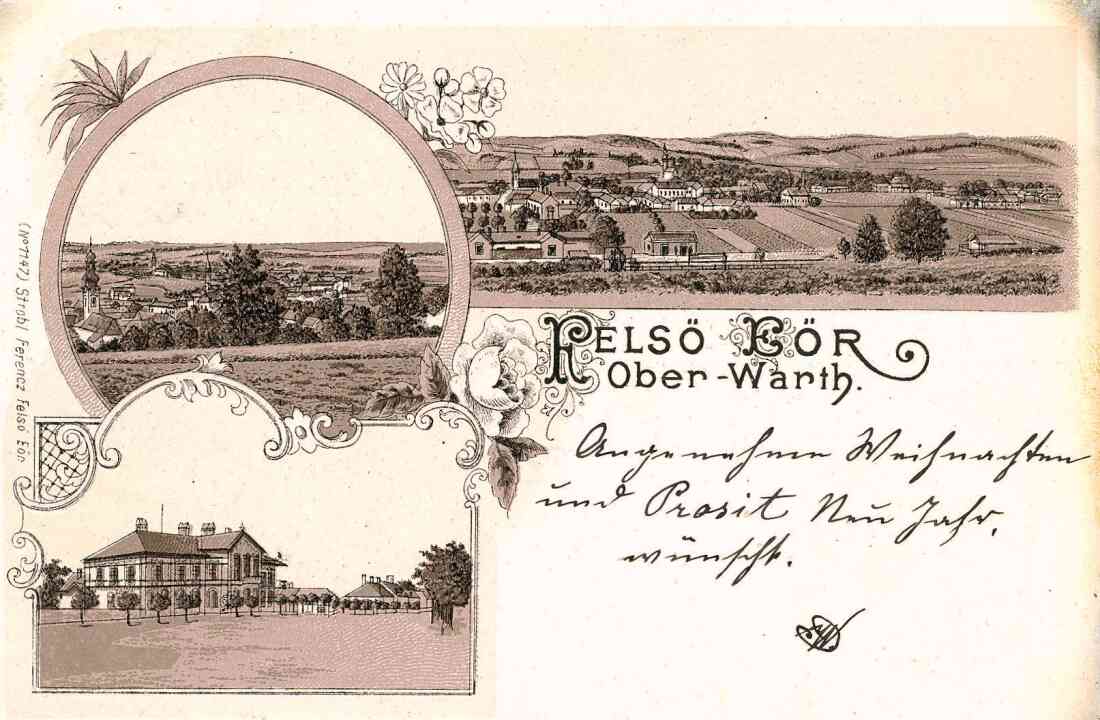 (No 1147) Strobl Ferencz Felsö Eör
FELSÖ EÖR
Ober-Warth.
Angenehme Weihnachten
und Prosit Neu Jahr,
wünscht.